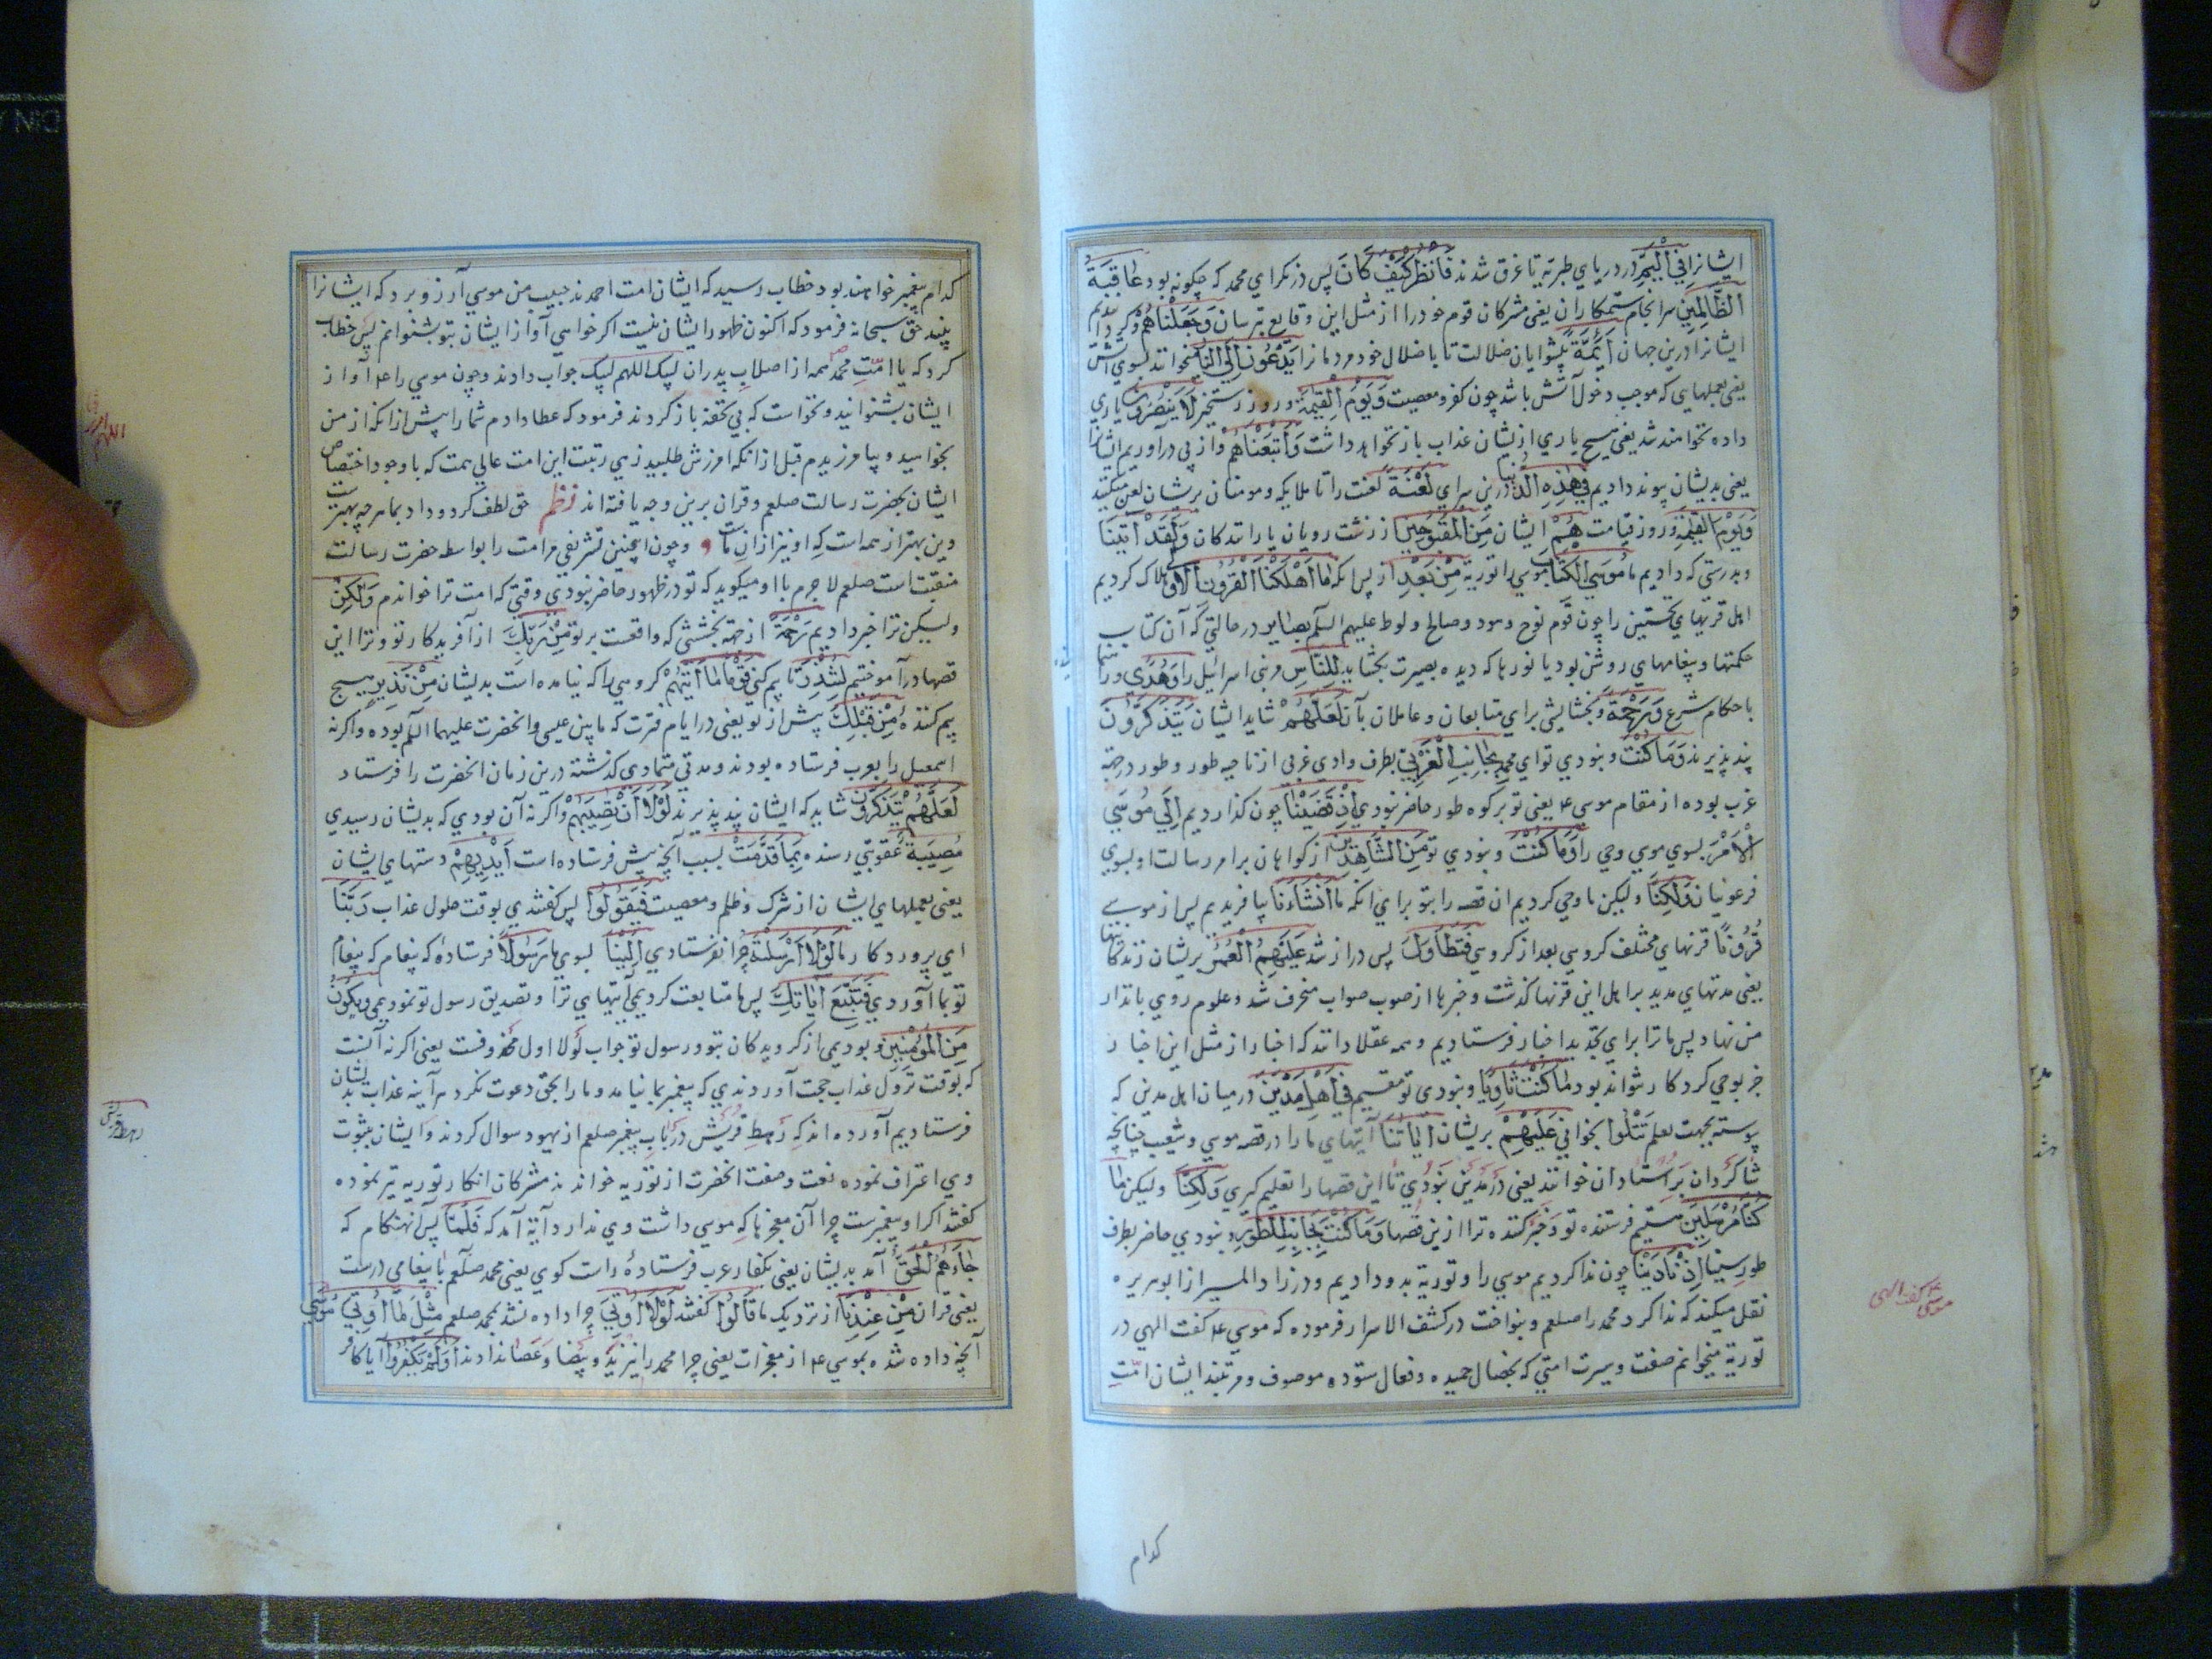 ایشانرا فِي الْيَمِّ در دریای طبریه تا غرق شدند فَانْظُرْ كَيْفَ كَانَ پس در نکر ای محمد که چکونه بود عَاقِبَةُ
الظَّالِمِينَ سرانجام ستمکاران یعنی مشرکان قوم خود را از مثل این وقایع بترسان وَجَعَلْنَاهُمْ و کردانیدیم
ایشانرا درین جهان اَئِمَّةً پیشوایان ضلالت تا با ضلال خود مردمانرا يَدْعُونَ اِلَى النَّارِ میخوانند بسوی آتش
یعنی بعملهایی که موجب دخول آتش باشد چون کفر و معصیت وَيَوْمَ الْقِيٰمَةِ و روز رستخیز لَا يُنْصَرُونَ یاری
داده نخواهند شد یعنی هیچ یاری از ایشان عذاب باز نخواهد داشت وَاَتْبَعْنَاهُمْ و از پی در آوردیم ایشانرا
یعنی بدیشان پیوند دادیم فِي هٰذِهِ الدُّنْيَا درین سرای لَعْنَةً لعنت را تا ملایکه و مومنان بریشان لعن میکنند
وَيَوْمَ الْقِيٰمَةِ و روز قیامت هُمْ ایشان مِنَ الْمَقْبُوحِينَ از زشت رویان یا راندکان وَلَقَدْ اٰتَيْنَا
و بدرستی که دادیم ما مُوسَى الْكِتَابَ موسی را توریة مِنْ بَعْدِ از پس انکه مَا اَهْلَكْنَا الْقُرُونَ الْاُولٰى هلاک کردیم
اهل قریهای نخستین را چون قوم نوح و هود و صالح و لوط علیهم السلم بَصَائِرَ در حالتی که آن کتاب
حکمتها و پیغامهای روشن بود یا نورها که دیده بصیرت بکشاید لِلنَّاسِ مر بنی اسرائیل را وَهُدًى و راه نما
باحکام شرع وَرَحْمَةً و بخشایشی برای متابعان و عاملان بآن لَعَلَّهُمْ شاید ایشان يَتَذَكَّرُونَ
پند پذیرند وَمَا كُنْتَ و نبودی تو ای محمد بِجَانِبِ الْغَرْبِيِّ بطرف وادی غربی از ناحیه طور و طور در جهة
غرب بوده از مقام موسی ع یعنی تو بر کوه طور حاضر نبودی اِذْ قَضَيْنَا چون کذاردیم اِلٰى مُوسَى
الْاَمْرَ بسوی موسی وحی را وَمَا كُنْتَ و نبودی تو مِنَ الشَّاهِدِينَ از کواهان بر امر رسالت او بسوی
فرعونیان وَلٰكِنَّا و لیکن ما وحی کردیم این قصه را بتو برای انکه ما اَنْشَاْنَا بیافریدیم پس از موسی
قُرُونًا قرنهای مختلف کروهی بعد از کروهی فَتَطَاوَلَ پس دراز شد عَلَيْهِمُ الْعُمُرُ بریشان زندکانیها
یعنی مدتهای مدید بر اهل این قرنها کذشت و خبرها از صوب صواب منحرف شد و علوم روی باندراس
من نهاد پس ما ترا برای تجدید اخبار فرستادیم و همه عقلا دانند که اخبار از مثل این اخبار
جز بوحی کردکار نتواند بود مَا كُنْتَ ثَاوِيًا و نبودی تو مقیم فِي اَهْلِ مَدْيَنَ در میان اهل مدین که
پیوسته بجهت تعلم تَتْلُوا بخوانی عَلَيْهِمْ بریشان اٰيَاتِنَا آیتهای ما را در قصه موسی و شعیب چنانچه
شاکردان بر استادان خوانند یعنی در مدین نبودی تا این قصها را تعلیم کیری وَلٰكِنَّا و لیکن ما
كُنَّا مُرْسِلِينَ هستیم فرستنده تو و خبر کننده ترا ازین قصها وَمَا كُنْتَ بِجَانِبِ الطُّورِ و نبودی حاضر بطرف
طور سینا اِذْ نَادَيْنَا چون ندا کردیم موسی را و توریة بدو دادیم و در زاد المسیر از ابو هریره
نقل میکند که ندا کرد محمد را صلعم و بنواخت در کشف الاسرار فرموده که موسی ع کفت الهی در
توریة میخوانم صفت و سیرت امتی که بخصال حمیده و فعال ستوده موصوف و مرتبند ایشان امّت
کدام
موسی ع کفت الهی
کدام پیغمبر خواهند بود خطاب رسید که ایشان امت احمدند حبیب من موسی آرزو برد که ایشانرا
بیند حق سبحانه فرمود که اکنون ظهور ایشان نیست اکر خواهی آواز ایشان بتو بشنوانم پس خطاب
کرد که یا امّتِ محمد همه از اصلاب پدران لبیک اللهم لبیک جواب دادند و چون موسی را ع آواز
ایشان بشنوانید نخواست که بی تحفه باز کردند فرمود که عطا دادم شما را پیش ازانکه از من
بخواهید و بیامرزیدم قبل ازانکه امرزش طلبید زهی رتبت این امت عالی همت که با وجود اختصاص
ایشان بحضرت رسالت صلعم و قران برین وجه یافته اند نظم حق لطف کرده داد بما هر چه بهترست
وین بهتر از همه است که او نیز ازان ماست و چون اینچنین تشریفی مر امت را بواسطه حضرت رسالت
منقبت است صلعم لا جرم با او میکوید که تو در ظهور حاضر نبودی وقتی که امت ترا خواندم وَلٰكِنْ
و لیکن ترا خبر دادیم رَحْمَةً از جهة بخششی که واقعست بر تو مِنْ رَبِّكَ از آفریدکار تو و ترا این
قصها در آموختیم لِتُنْذِرَ تا بیم کنی قَوْمًا مَا اَتٰيهُمْ کروهی را که نیامده است بدیشان مِنْ نَذِيرٍ هیچ
بیم کننده مِنْ قَبْلِكَ پیش از تو یعنی در ایام فترت که مابین عیسی و انحضرت علیهما السلم بوده و اکرنه
اسمعیل را بعرب فرستاده بودند و مدتی متمادی کذشته درین زمان انحضرت را فرستاد
لَعَلَّهُمْ يَتَذَكَّرُونَ شاید که ایشان پند پذیرند لَوْلَا اَنْ تُصِيبَهُمْ و اکرنه آن بودی که بدیشان رسیدی
مُصِيبَةٌ عقوبتی رسنده بِمَا قَدَّمَتْ بسبب آنچه پیش فرستاده است اَيْدِيهِمْ دستهای ایشان
یعنی بعملهای ایشان از شرک و ظلم و معصیت فَيَقُولُوا پس کفتندی بوقت حلول عذاب رَبَّنَا
ای پروردکار ما لَوْلَا اَرْسَلْتَ چرا نفرستادی اِلَيْنَا بسوی ما رَسُولًا فرستادۀ که پیغام که پیغام
تو بما آوردی فَنَتَّبِعَ اٰيَاتِكَ پس ما متابعت کردیمی آیتهای ترا و تصدیق رسول تو نمودیمی وَنَكُونَ
مِنَ الْمُؤْمِنِينَ و بودیمی از کرویدکان بتو و رسول تو جواب لولا اول محذوفست یعنی اکرنه آنست
که بوقت نزول عذاب حجت آوردندی که پیغمبر بما نیامد و ما را بحق دعوت نکرد هر آینه عذاب بدیشان
فرستادیم آورده اند که رهط قریش در باب پیغمبر صلعم از یهود سوال کردند و ایشان بنبوت
وی اعتراف نموده نعت و صفت انحضرت از توریه خواندند مشرکان انکار توریه نیز نموده
کفتند اکر او پیغمبرست چرا آن معجزها که موسی داشت وی ندارد آیة آمد که فَلَمَّا پس آنهنکام که
جَاءَهُمُ الْحَقُّ آمد بدیشان یعنی بکفار عرب فرستادۀ راست کوی یعنی محمد صلعم با پیغامی درست
یعنی قران مِنْ عِنْدِنَا از نزدیک ما قَالُوا کفتند لَوْلَا اُوتِيَ چرا داده نشد بمحمد صلعم مِثْلَ مَا اُوتِيَ مُوسٰى
آنچه داده شده بموسی ع از معجزات یعنی چرا محمد را نیز ید و بیضا و عصا ندادند اَوَلَمْ يَكْفُرُوا آیا کافر
رهط قریش